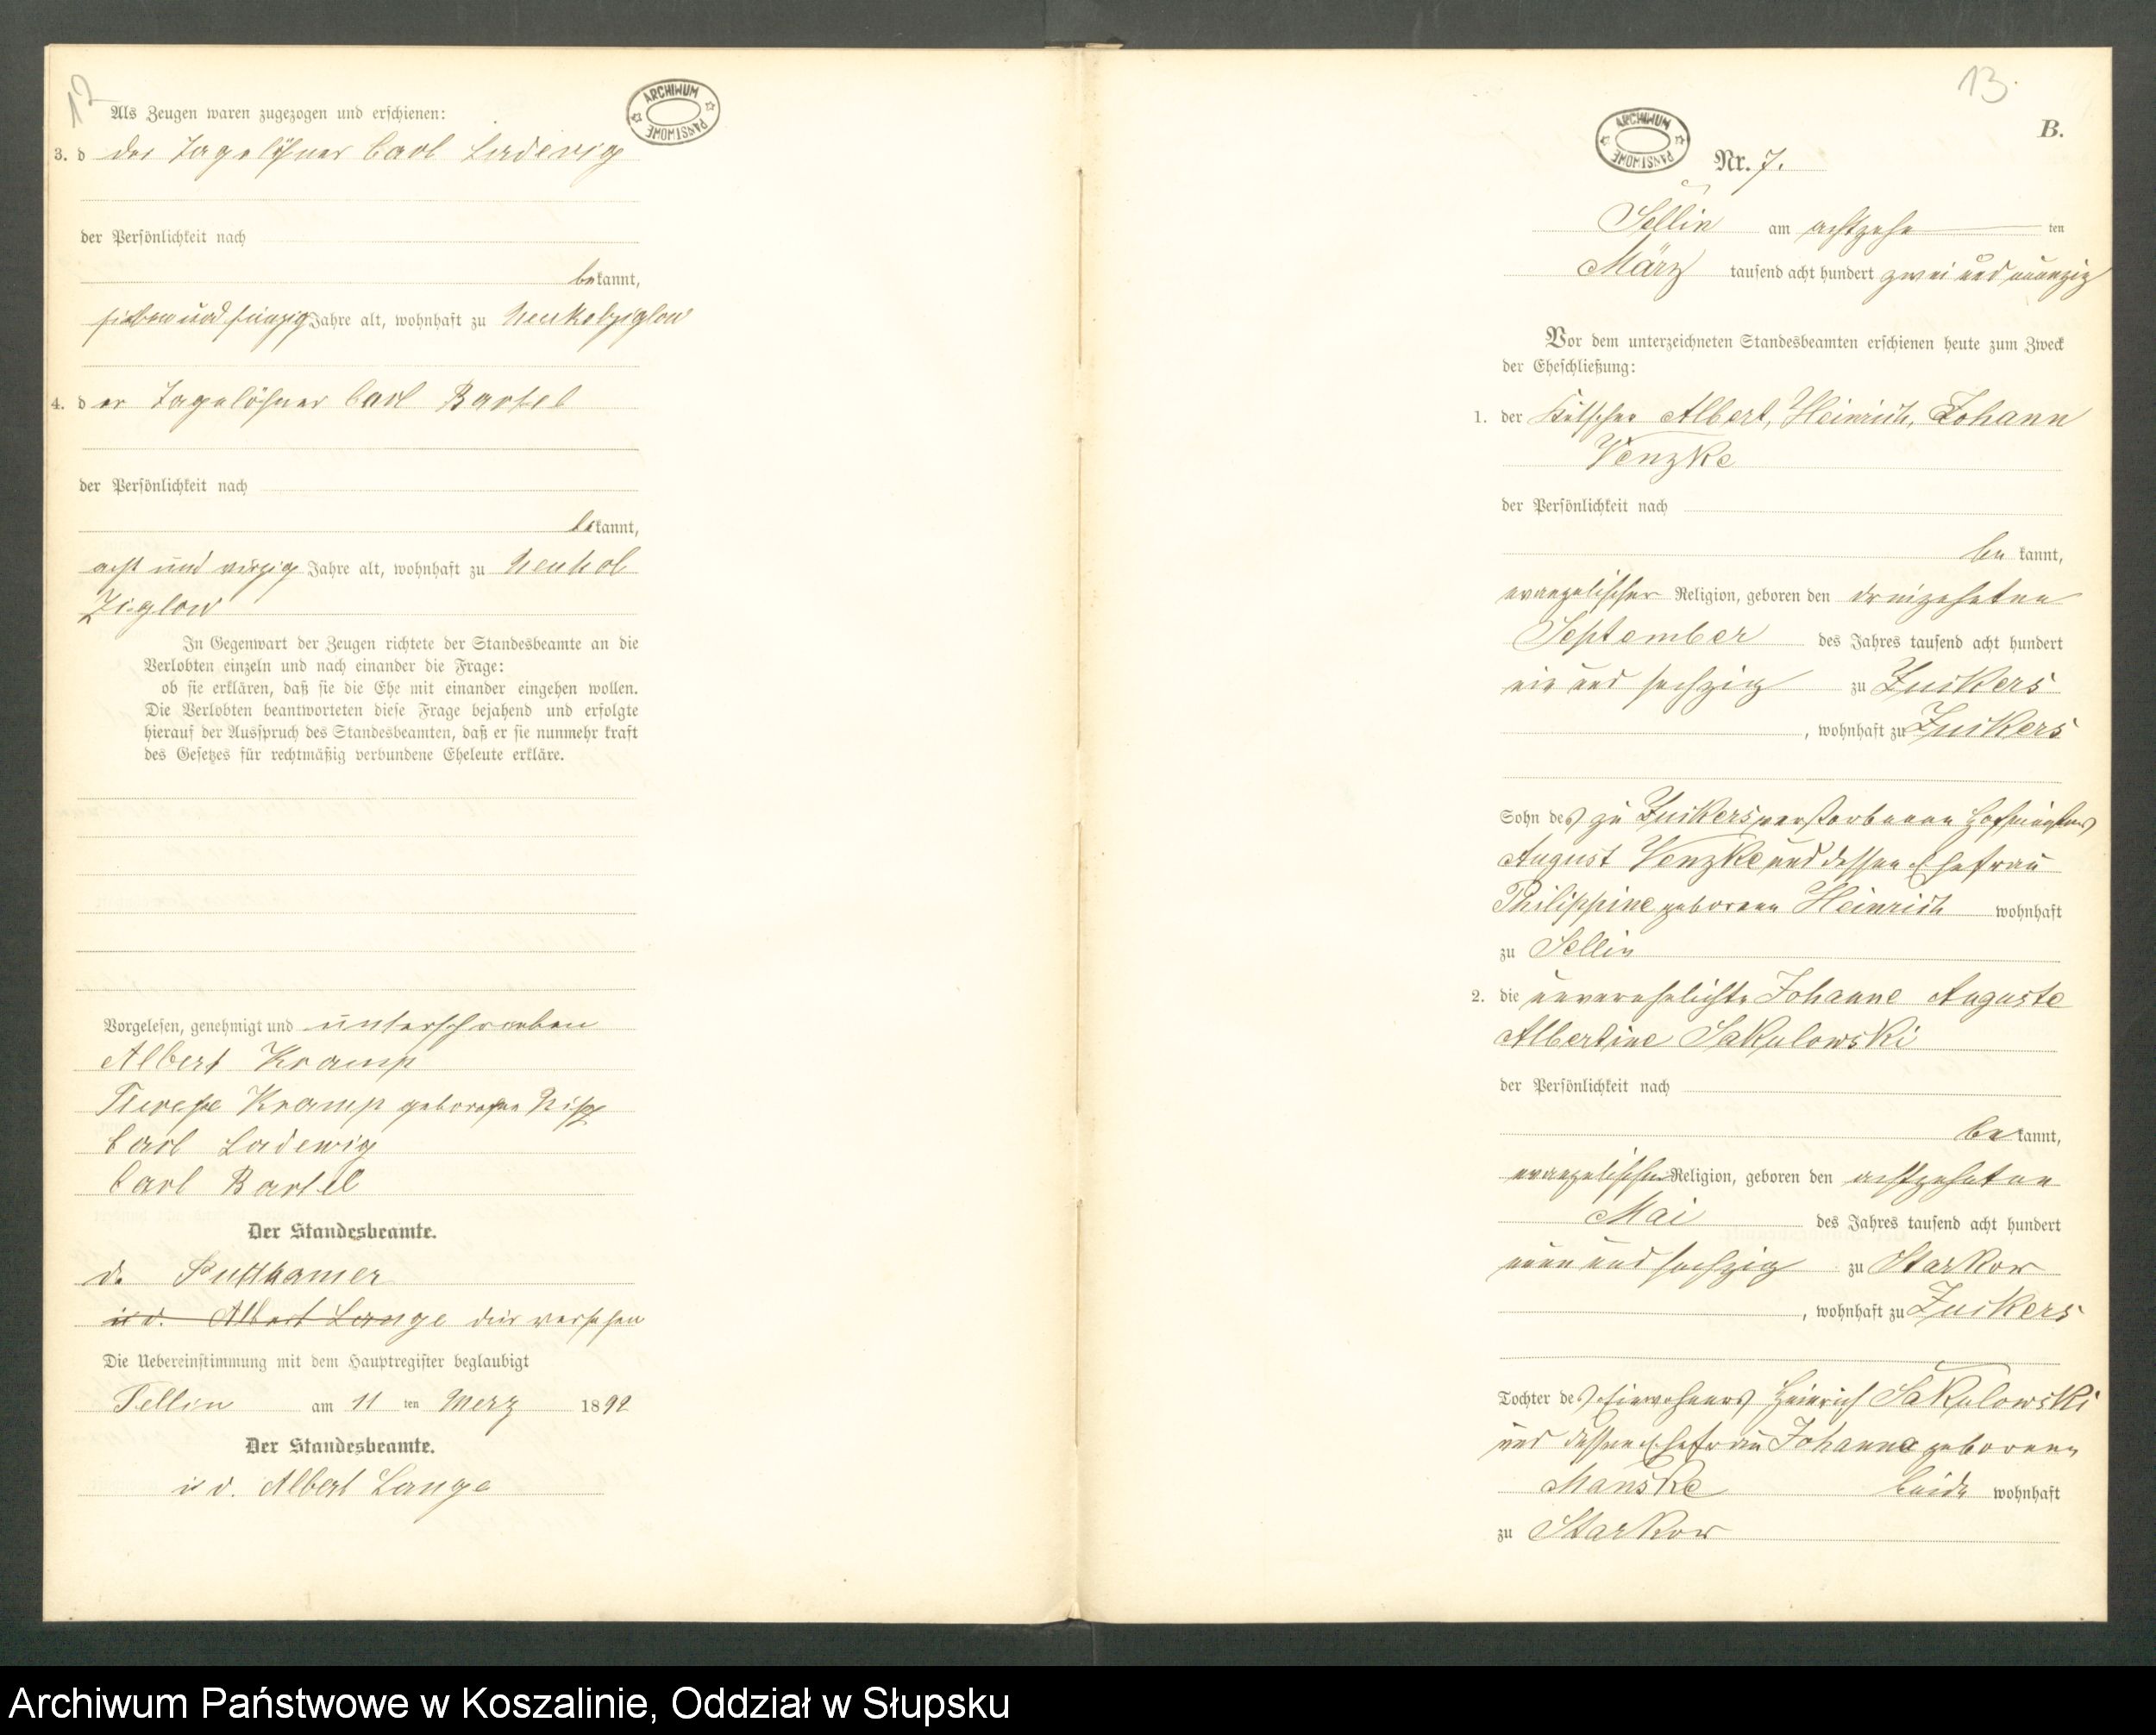 12
Als Zeugen waren zugezogen und erschienen:
3. d der Tagelöhner Carl Ladewig
der Persönlichkeit nach
bekannt,
Jahre alt, wohnhaft zu Neukolziglow
4. der Tagelöhner Carl Bartel
der Persönlichkeit nach
bekannt,
acht und vierzig Jahre alt, wohnhaft zu Neukol
Ziglow
In Gegenwart der Zeugen richtete der Standesbeamte an die
Verlobten einzeln und nach einander die Frage:
ob sie erklären, daß sie die Ehe mit einander eingehen wollen.
Die Verlobten beantworteten diese Frage bejahend und erfolgte
hierauf der Ausspruch des Standesbeamten, daß er sie nunmehr kraft
des Gesetzes für rechtmäßig verbundene Eheleute erkläre.
Vorgelesen, genehmigt und unterschrieben
Albert Kramp
Therese Kramp geborene
Carl Ladewig
Carl Bartel
Der Standesbeamte.
Puttkamer
Albert Lange
Die Uebereinstimmung mit dem Hauptregister beglaubigt
Sellin am 11 ten Merz 1892
Der Standesbeamte.
Albert Lange
ARCHIWUM PAŃSTWOWE
13.
B.
ARCHIWUM PAŃSTWOWE
Nr. 7.
Sellin am achtzehn ten
März tausend acht hundert zwei und neunzig
Vor dem unterzeichneten Standesbeamten erschienen heute zum Zweck
der Eheschließung:
1. der Kutscher Albert, Heinrich, Johann
Venzke
der Persönlichkeit nach
be kannt,
evangelischer Religion, geboren den dreizehnten
September des Jahres tausend acht hundert
ein und sechzig zu Zuckers
, wohnhaft zu Zuckers
Sohn des zu Zuckers verstorbenen Hofmeisters
August Venzke und dessen Ehefrau
Philippine geborenen Heinrich wohnhaft
zu Sellin
2. die unverehelichte Johanne Auguste
Albertine Sakulowski
der Persönlichkeit nach
bekannt,
evangelischer Religion, geboren den achtzehnten
Mai des Jahres tausend acht hundert
neun und sechzig zu Starkow
, wohnhaft zu Zuckers
Tochter des Einwohners Heinrich Sakulowski
und dessen Ehefrau Johanna geborenen
Manske beide wohnhaft
zu Starkow
Archiwum Państwowe w Koszalinie, Oddział w Słupsku